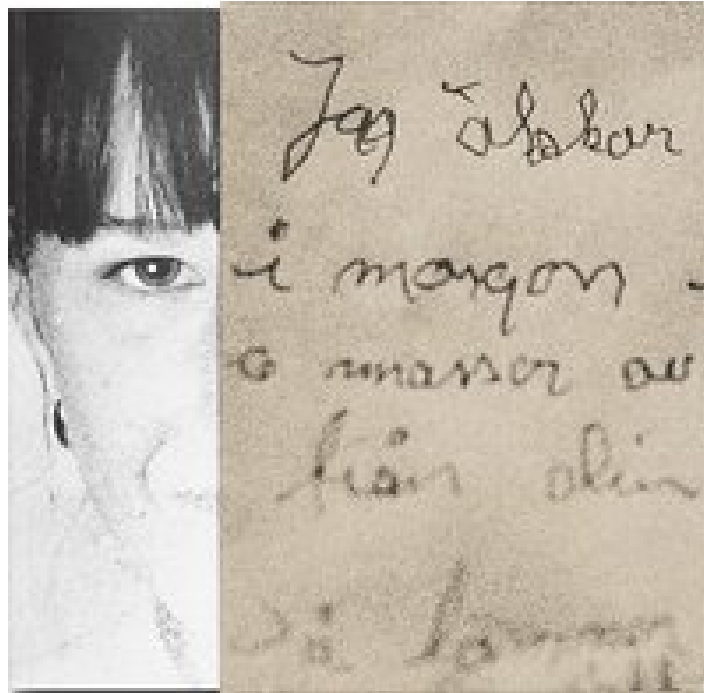 Jag åkkar
i morgon
o masser av
från din